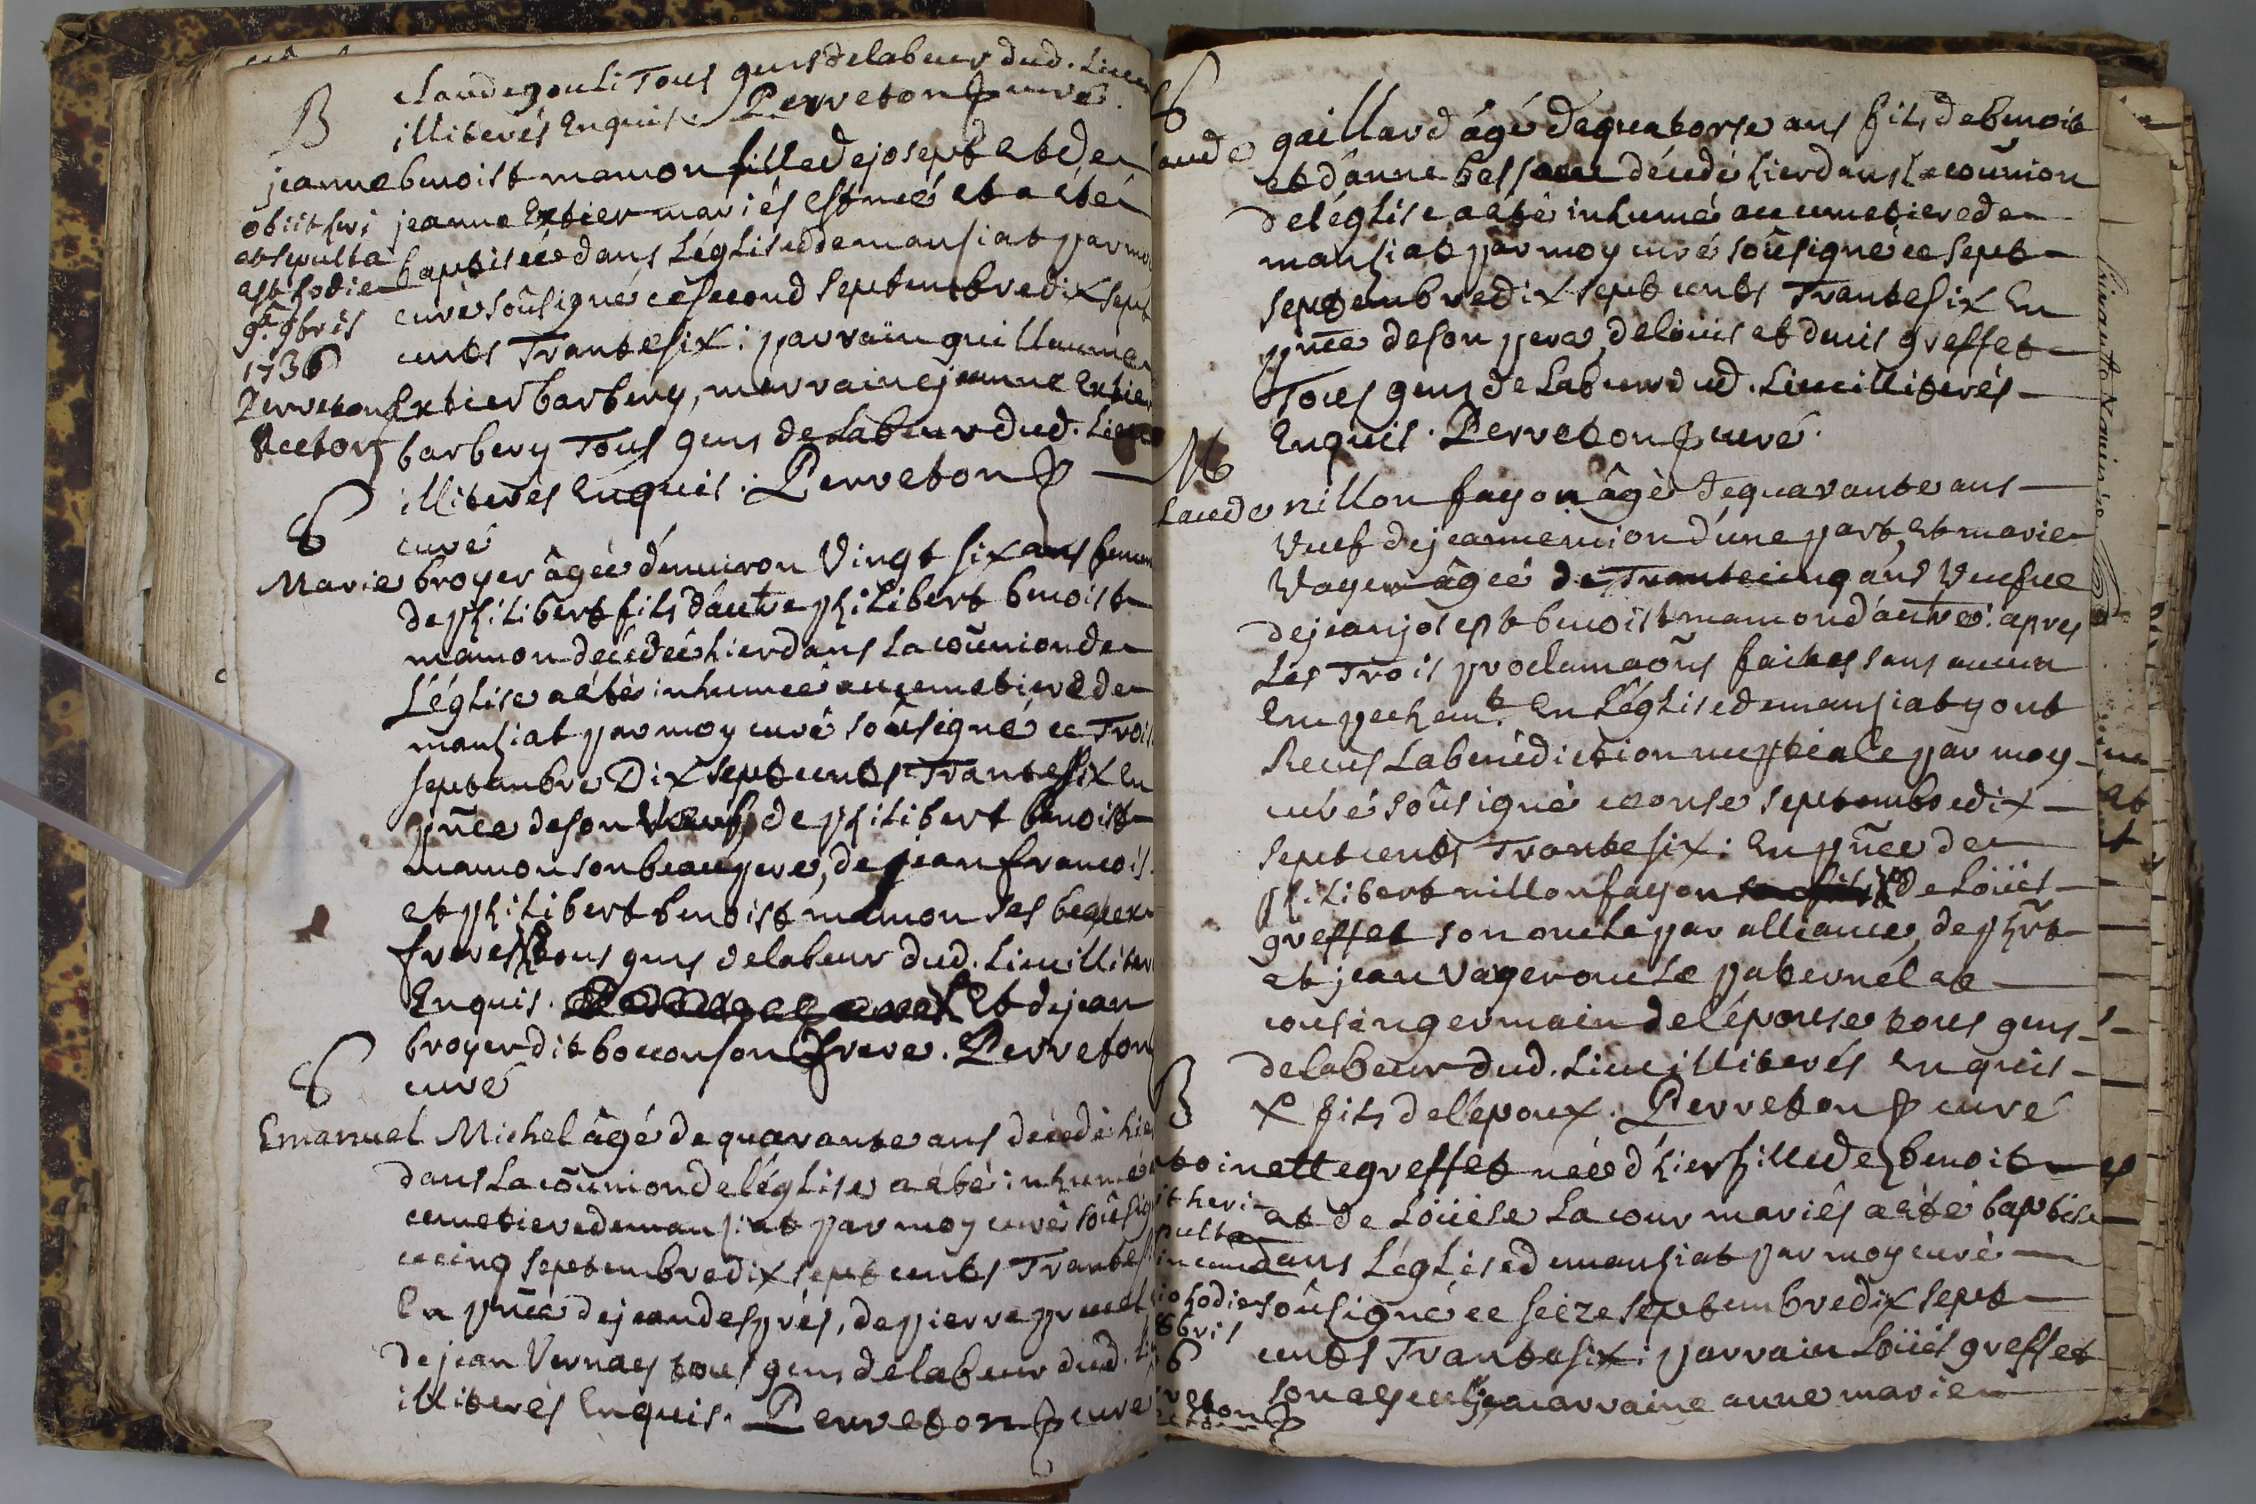 claude gouli Tous gens de labeur dud. Lieu
illiterés Enquis. Perreton curé.
B
jeanne benoist mamon fille de josept et de
jeanne Extier mariés Est née et a été
baptisée dans Léglise de mansiat par moy
curé soûsigné ce second septembre dix sept
cents Trante six : parrain guillaume
Extier barbery, marraine jeanne Extier
barbery Tous gens de Labeur dud. Lieu
illiteres Enquis. Perreton
curé
obiit heri
et sepulta
est hodie
9a 9bris
1736
Perreton
Rector
6
Marie broyer âgée d'enuiron Vingt six ans femme
de philibert fils d'autre philibert benoist
mamon décédée hier dans la coũnion de
L'église a été inhumée au cemetiere de
mansiat par moy curé soûsigné ce Trois
septembre Dix sept cents Trante six En
pñce de son Veuf, de philibert benoist
mamon son beaupere, de jean francois
et philibert benoist mamon ses beaux
freres tous gens de labeur dud. Lieu illiter
Enquis. Et de jean
broyer dit boccon son frere. Perreton
curé
6
Emanuel Michel âgé de quarante ans décédé hier
dans La coũnion de léglise a été inhumé
cemetiere de mansiat par moy curé soûsig
ce cinq septembre dix sept cents Trante
En pñce de jean després, de pierre pruel
de jean Vernay tous gens de labeur dud.
illiterés Enquis. Perreton curé
6
aude gaillard âgé de quatorse ans fils de benoit
et d'anne bessone décédé hier dans La coũnion
de léglise a été inhumé au cemetiere de
mansiat par moy curé soûsigné ce sept
septembre dix sept cents Trante six En
pñce de son pere, de loüis et denis greffet
Tous gens de Labeur dud. Lieu illiterés
Enquis. Perreton curé.
M
laude nillon fayon âgé de quarante ans
Veuf de jeanne mion d'une part, et marie
Vayer âgée de Trante cinq ans Veufue
de jean josept benoist mamon d'autre : apres
Les Trois proclamaoñs faites sans aucun
Empechemt. En Léglise de mansiat y ont
Receus La bénédiction nuptiale par moy
curé soûsigné ce onse septembre dix
sept cents Trante six : En pñce de
philibert nillon fayon de Loüis
greffet son oncle par alliance, de phrt
et jean Vayer oncle paternel et
cousin germain de l'épouse tous gens
de labeur dud. Lieu illiterés Enquis
x fils de l'epoux. Perreton curé
B
toinette greffet née d'hier fille de benoit
et de Loüise La cour mariés a été baptisée
dans Léglise de mansiat par moy curé
soûsigné ce seize septembre dix sept
cents Trante six : parrain Loüis greffet
son ayeul, marraine anne marie
it heri
pulta
in cem
io hodie
8bris
6
reton